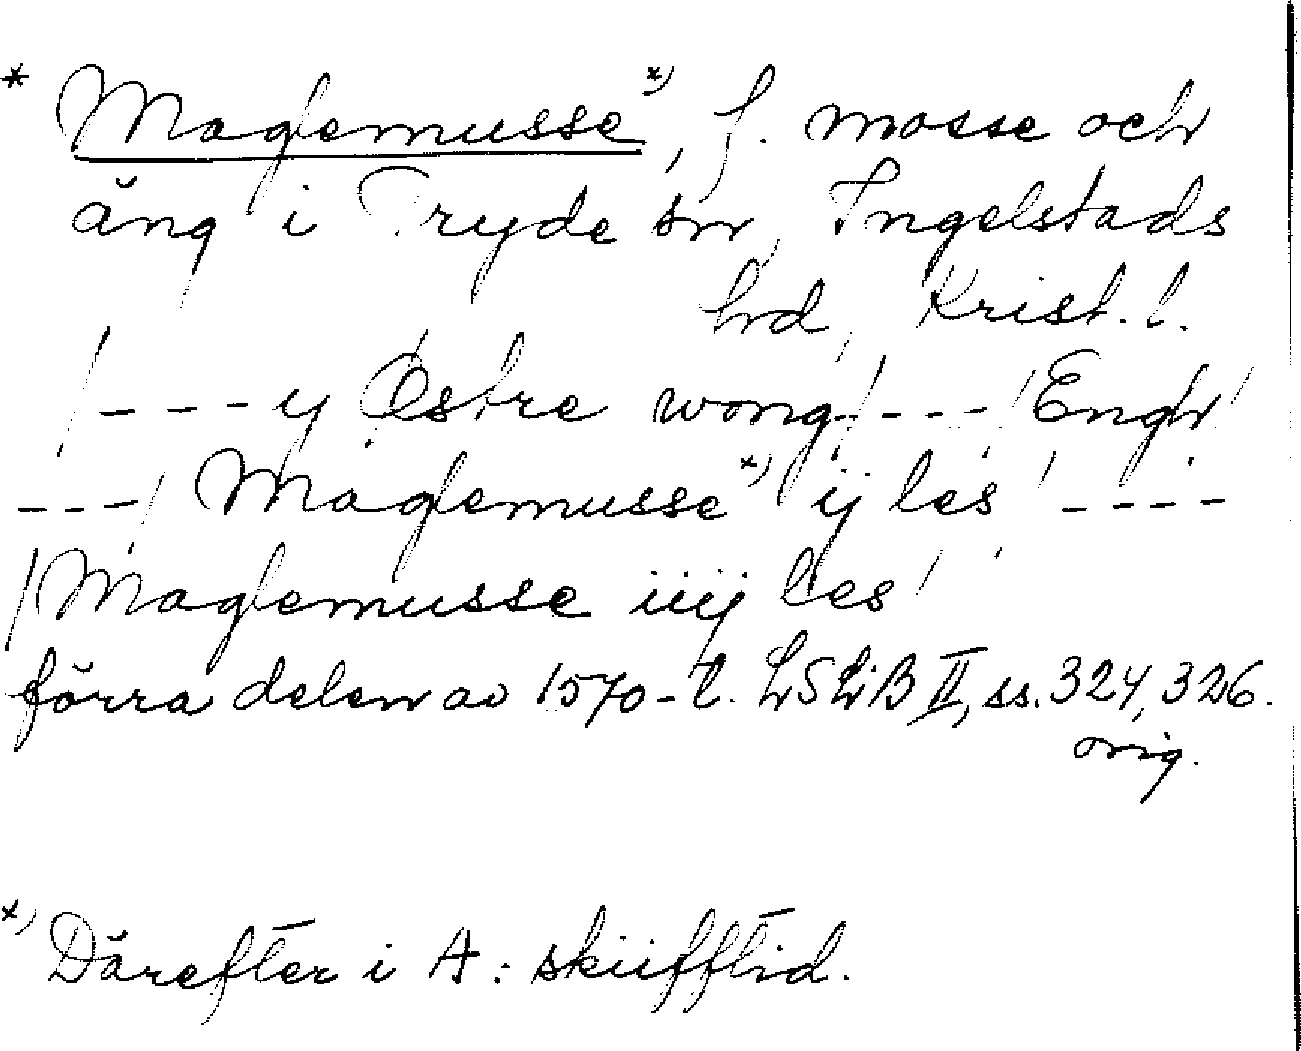 * Maglemusse *), f. mosse och
äng i Tryde sn, Ingelstads
hd, Krist. l.
/---y Østre wong/---/Engh/
---/ Maglemusse *) ij les / ----
/Maglemusse iiij les /
förra delen av 1570-t. LSLjB II, ss. 324, 326.
orig.
*) Därefter i A: skiifftid.